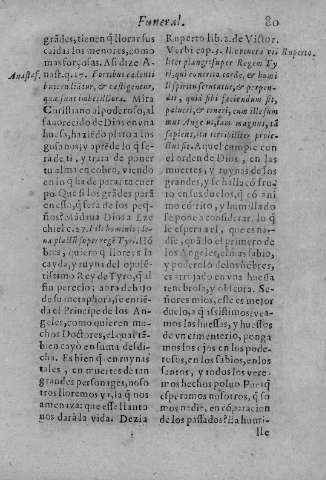 Funeral. 80
grãdes, tienen q̃ llorar sus
caidas los menores, como
mas forçosas. Assi dize A-
nast. q. 17. Fortibus cadenti
Anastas.
qua sunt imbecillora. Mira
Christiano al poderoso, al
fauorecido de Dios en vna
huesa, haziédo plato a los
gusanos, y aprẽde lo q̃ se-
ra de ti, y trata de poner
tu alma en cobro, viendo
en lo q̃ ha de parar tu cuer
po. Que si los grãdes parã
en esso, q̃ sera de los peq̃-
chiel c. 27. Fili hominis; le-
na planctũ super regẽ Tyri. Hõ
bres, quiero q̃ lloreys la
cayda, y ruyna del opulé-
tissimo Rey de Tyro, q̃ al
fin perecio; aora debajo
de su metaphora, se entié-
da el Principe de los An-
geles, como quieren mu-
chos Doctores, el qual tã-
bien cayó en suma desdi-
cha. Es bien q̃ en ruynas
tales, en muertes de tan
grandes personages, noso-
tros lloremos y a, la q̃ nos
amenaza: que esse llanto
nos dara la vida. Dezia
Ruperto lib. 2. de Victor.
Ruperto.
liter plangi super Regem Ty
ri, qui contrito corde, & humi
li spiritu scrutatur, & perpen-
dit, quid sibi faciendum sit,
pulueri, & cineri, cum illesum
sapiens, ita terribiliter proie-
ctus sit. Aquel cumple con
el orden de Dios, en las
muertes, y ruynas de los
grandes, y se halla có fru-
to en sus duelos, q̃ có ani
mo cótrito, y humillado
se pone a considerar, lo q̃
le espera a el, que es na-
die, quãdo el primero de
los Angeles, el mas sabio,
y poderoso de los hẽbres,
es arrojado en vna huessa
tenebrosa, y obscura. Se-
ñores mios, esse es mejor
duelo, a q̃ assistimos; vea-
mos las huessas, y huessos
de vn cimenterio, ponga
mos los ojos en los pode-
rosos, en los sabios, en los
santos, y todos los vere-
mos hechos poluo. Pues q̃
esperamos nosotros, q̃ so
mos nadie, en cóparacion
de los passados? si a humi-
lle